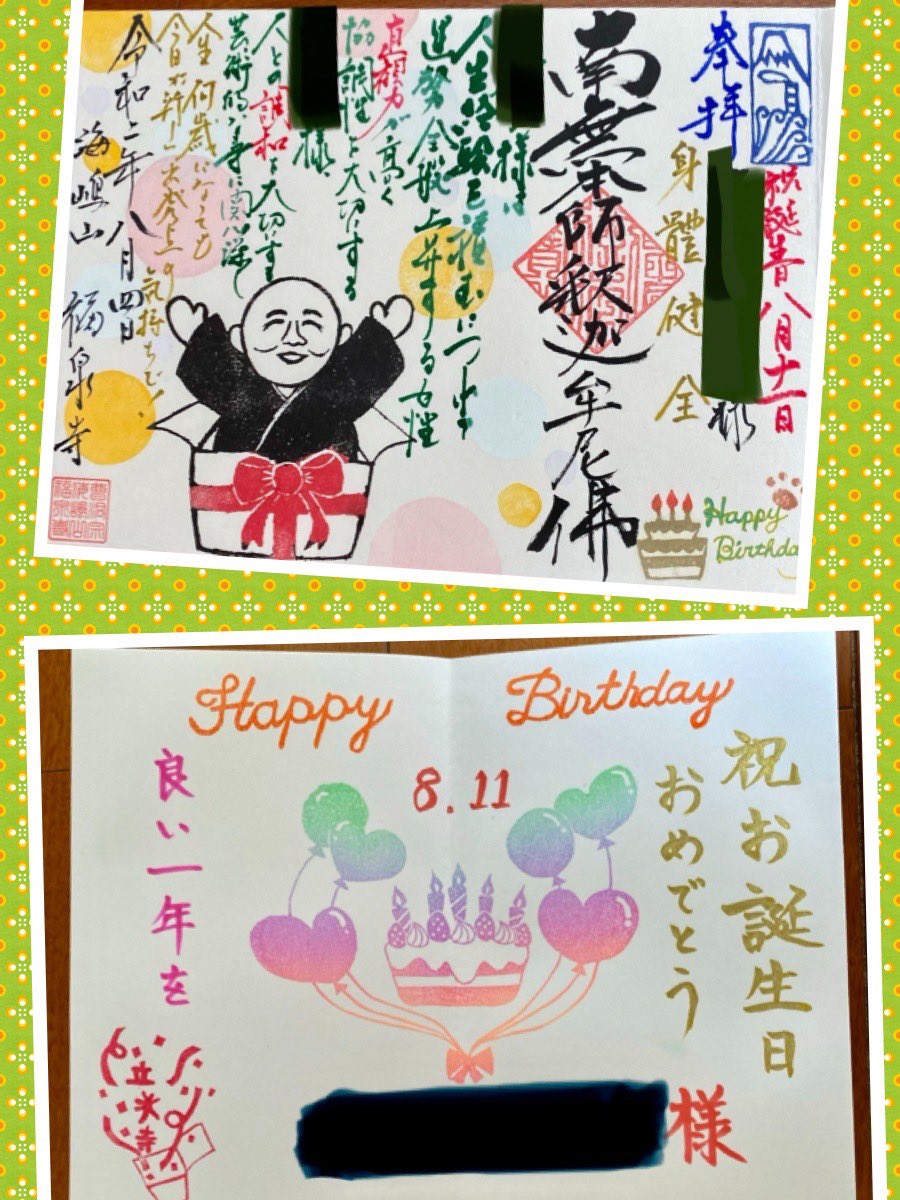 祝誕八月十一日
奉拝
様
身體健全
南無本師釈迦牟尼佛
様は
人生経験を積むにつれ
運勢全般上昇する女性
直観力が高く
協調性を大切にする
様
人との調和を大切にする
芸術的な事に関心深
人生何歳になっても
今日が の気持ちで!
令和二年八月四日
海嶋山 福泉寺
Happy
Birthda
Happy Birthday
8.11
祝お誕生日
おめでとう
良い一年を
様